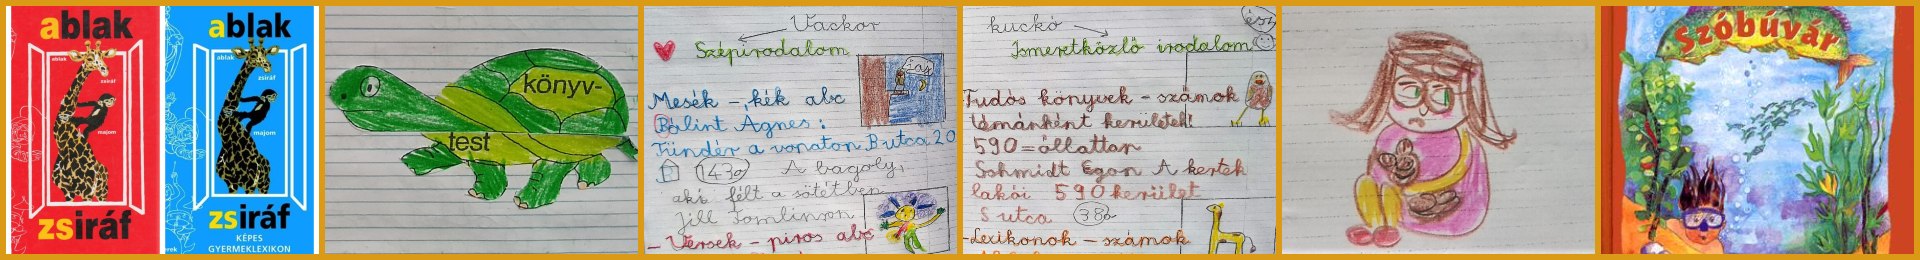 ablak
ablak
zsiráf
majom
zsiráf
ablak
ablak
zsiráf
majom
zsiráf
KÉPES
GYERMEKLEXIKON
könyv-
test
Vackor
Szépirodalom
Mesék - kék abc
Bálint Ágnes:
Tündér a vonaton B utca 20
143a A bagoly,
aki félt a sötétben
Jill Tomlinson
- Versek - piros abc
kuckó
Ismeretközlő irodalom
Tudós könyvek - számok
témánként kerületek!
590=állattan
Schmidt Egon A kertek
lakói 590 kerület
S utca 38a
-Lexikonok - számok
Szóbúvár